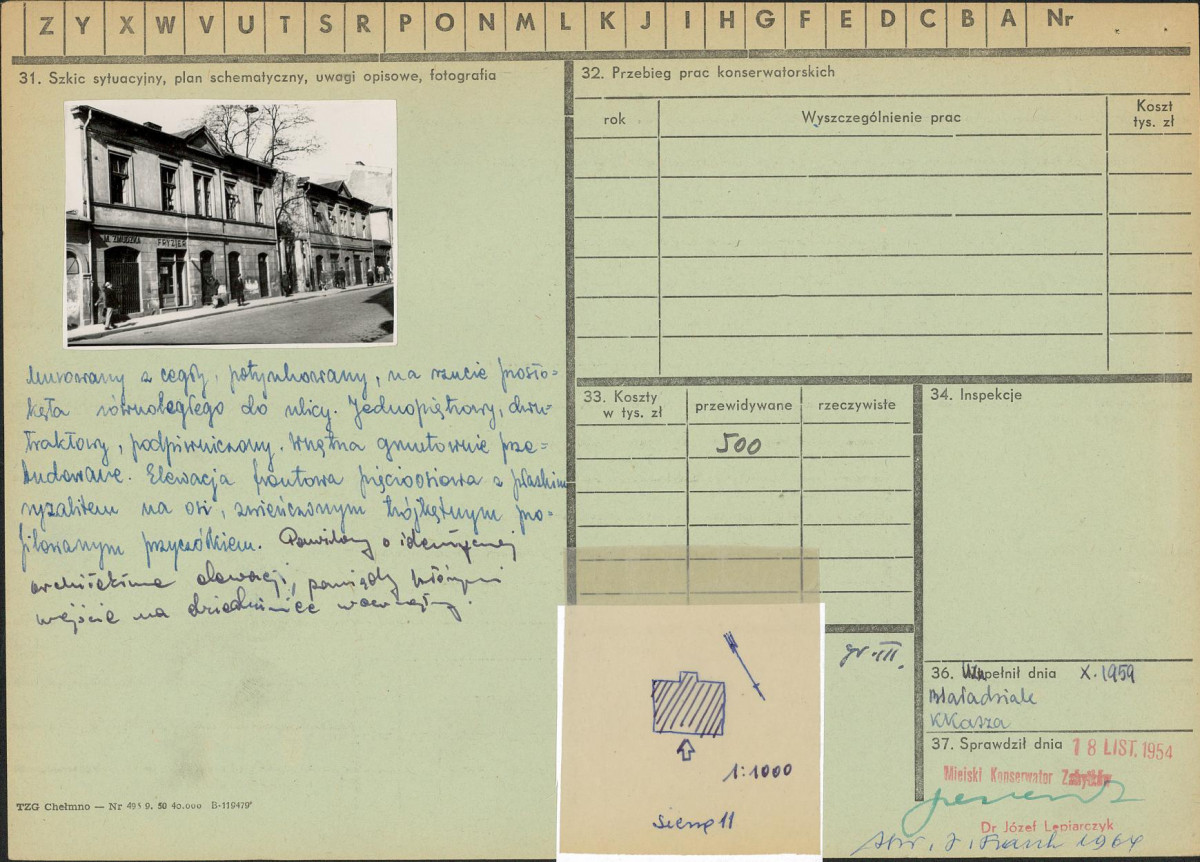 Z Y X W V U T S R P O N M L K J I H G F E D C B A Nr
31. Szkic sytuacyjny, plan schematyczny, uwagi opisowe, fotografia
FRYZJER
Murowany z cegły, potynkowany, na rzucie prosto-
kąta równoległego do ulicy. Jednopiętrowy, dwu-
traktowy, podpiwniczony. Wnętrza gruntownie prze-
budowane. Elewacja frontowa pięcioosiowa z płaskim
ryzalitem na osi, zwieńczonym trójkątnym pro-
filowanym przyczółkiem. Pawilony o identycznej
architekturze elewacji, pomiędzy którymi
wejście na dziedziniec wewnętrzny.
TZG Chełmno — Nr 495 9. 50 40.000 B-119479
32. Przebieg prac konserwatorskich
rok Wyszczególnienie prac Koszt
tys. zł
33. Koszty
w tys. zł przewidywane rzeczywiste
500
34. Inspekcje
gr. III.
1:1000
36. Wypełnił dnia X.1959
KKasza
37. Sprawdził dnia 18 LIST. 1954
Miejski Konserwator Zabytków
Dr Józef Lepiarczyk
1964